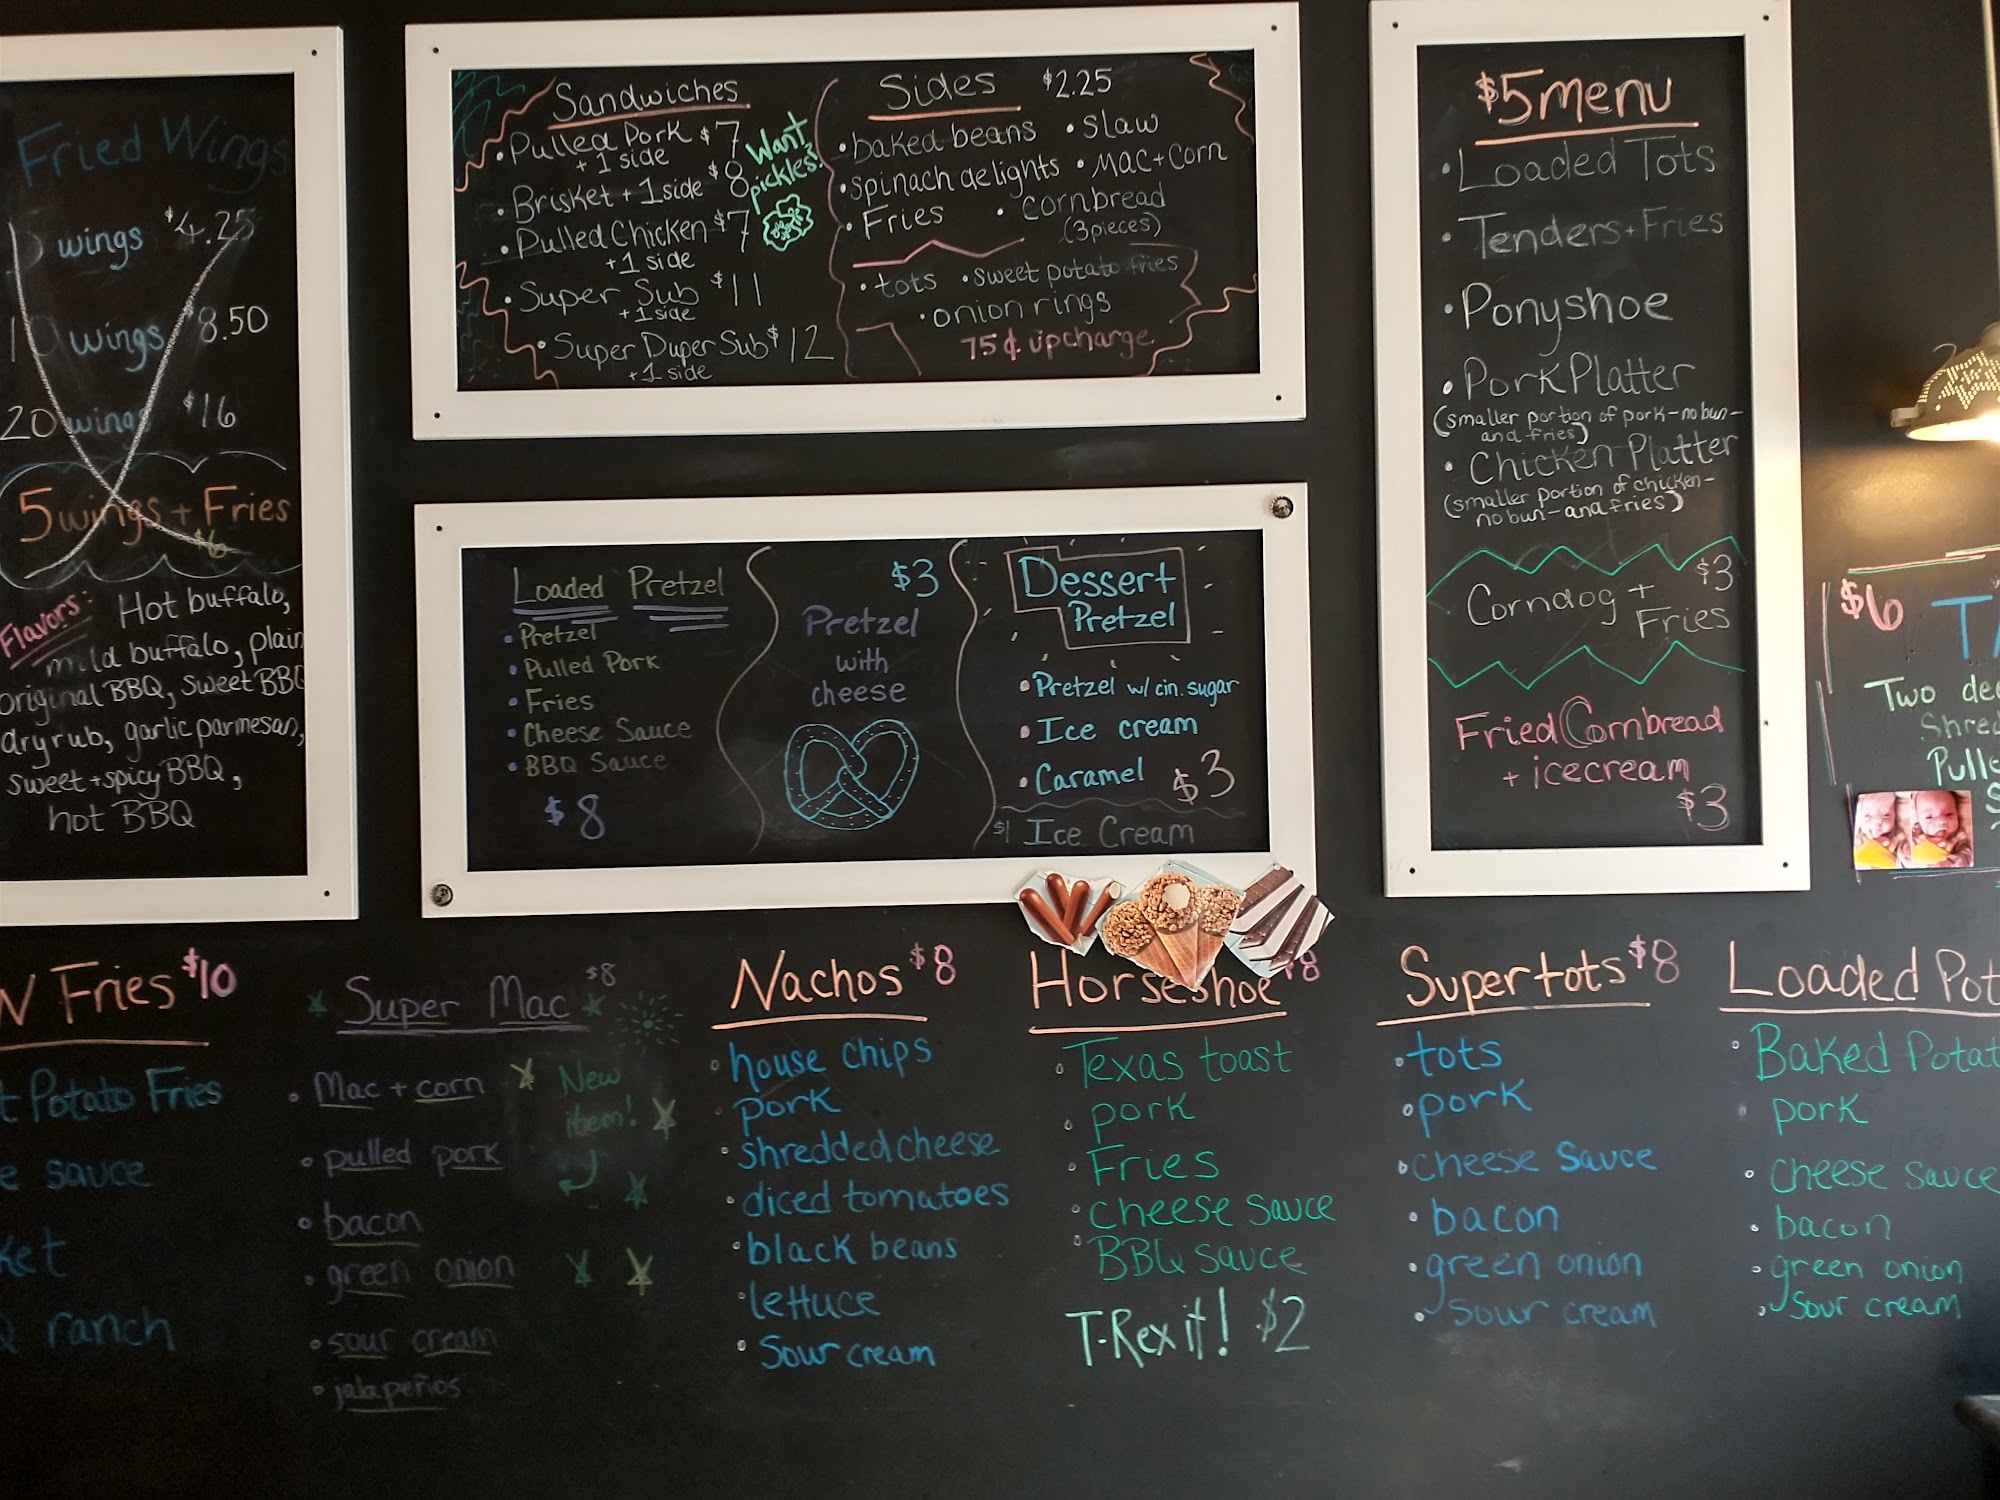 Fried Wings
5 wings $4.25
10 wings $8.50
20 wings $16
5 wings + Fries
$6
Flavors: Hot buffalo,
mild buffalo, plain
original BBQ, sweet BBQ
dry rub, garlic parmesan,
sweet + spicy BBQ,
hot BBQ
Sandwiches
• Pulled Pork $7
+ 1 side
• Brisket + 1 side $8
• Pulled Chicken $7
+ 1 side
• Super Sub $11
+ 1 side
• Super Duper Sub $12
+ 1 side
Want
pickles?
Sides $2.25
• baked beans • slaw
• spinach delights • mac + corn
• Fries • cornbread
(3 pieces)
• tots • sweet potato fries
• onion rings
75¢ upcharge
Loaded Pretzel
• Pretzel
• Pulled Pork
• Fries
• Cheese Sauce
• BBQ Sauce
$8
$3
Pretzel
with
cheese
Dessert
Pretzel
• Pretzel w/ cin. sugar
• Ice cream
• Caramel $3
$1 Ice Cream
$5 menu
• Loaded Tots
• Tenders + Fries
• Ponyshoe
• Pork Platter
(smaller portion of pork - no bun -
and fries)
• Chicken Platter
(smaller portion of chicken -
no bun - and fries)
Corndog + $3
Fries
Fried Cornbread
+ icecream
$3
$6
Two
Fries $10
Potato Fries
sauce
ranch
Super Mac $8
• Mac + corn
• pulled pork
• bacon
• green onion
• sour cream
• jalapeños
New
item!
Nachos $8
• house chips
• pork
• shredded cheese
• diced tomatoes
• black beans
• lettuce
• sour cream
Horseshoe $8
• Texas toast
• pork
• Fries
• cheese sauce
• BBQ sauce
T-Rex it! $2
Supertots $8
• tots
• pork
• cheese sauce
• bacon
• green onion
• sour cream
Loaded Pot
• Baked Potat
• pork
• cheese sauce
• bacon
• green onion
• sour cream